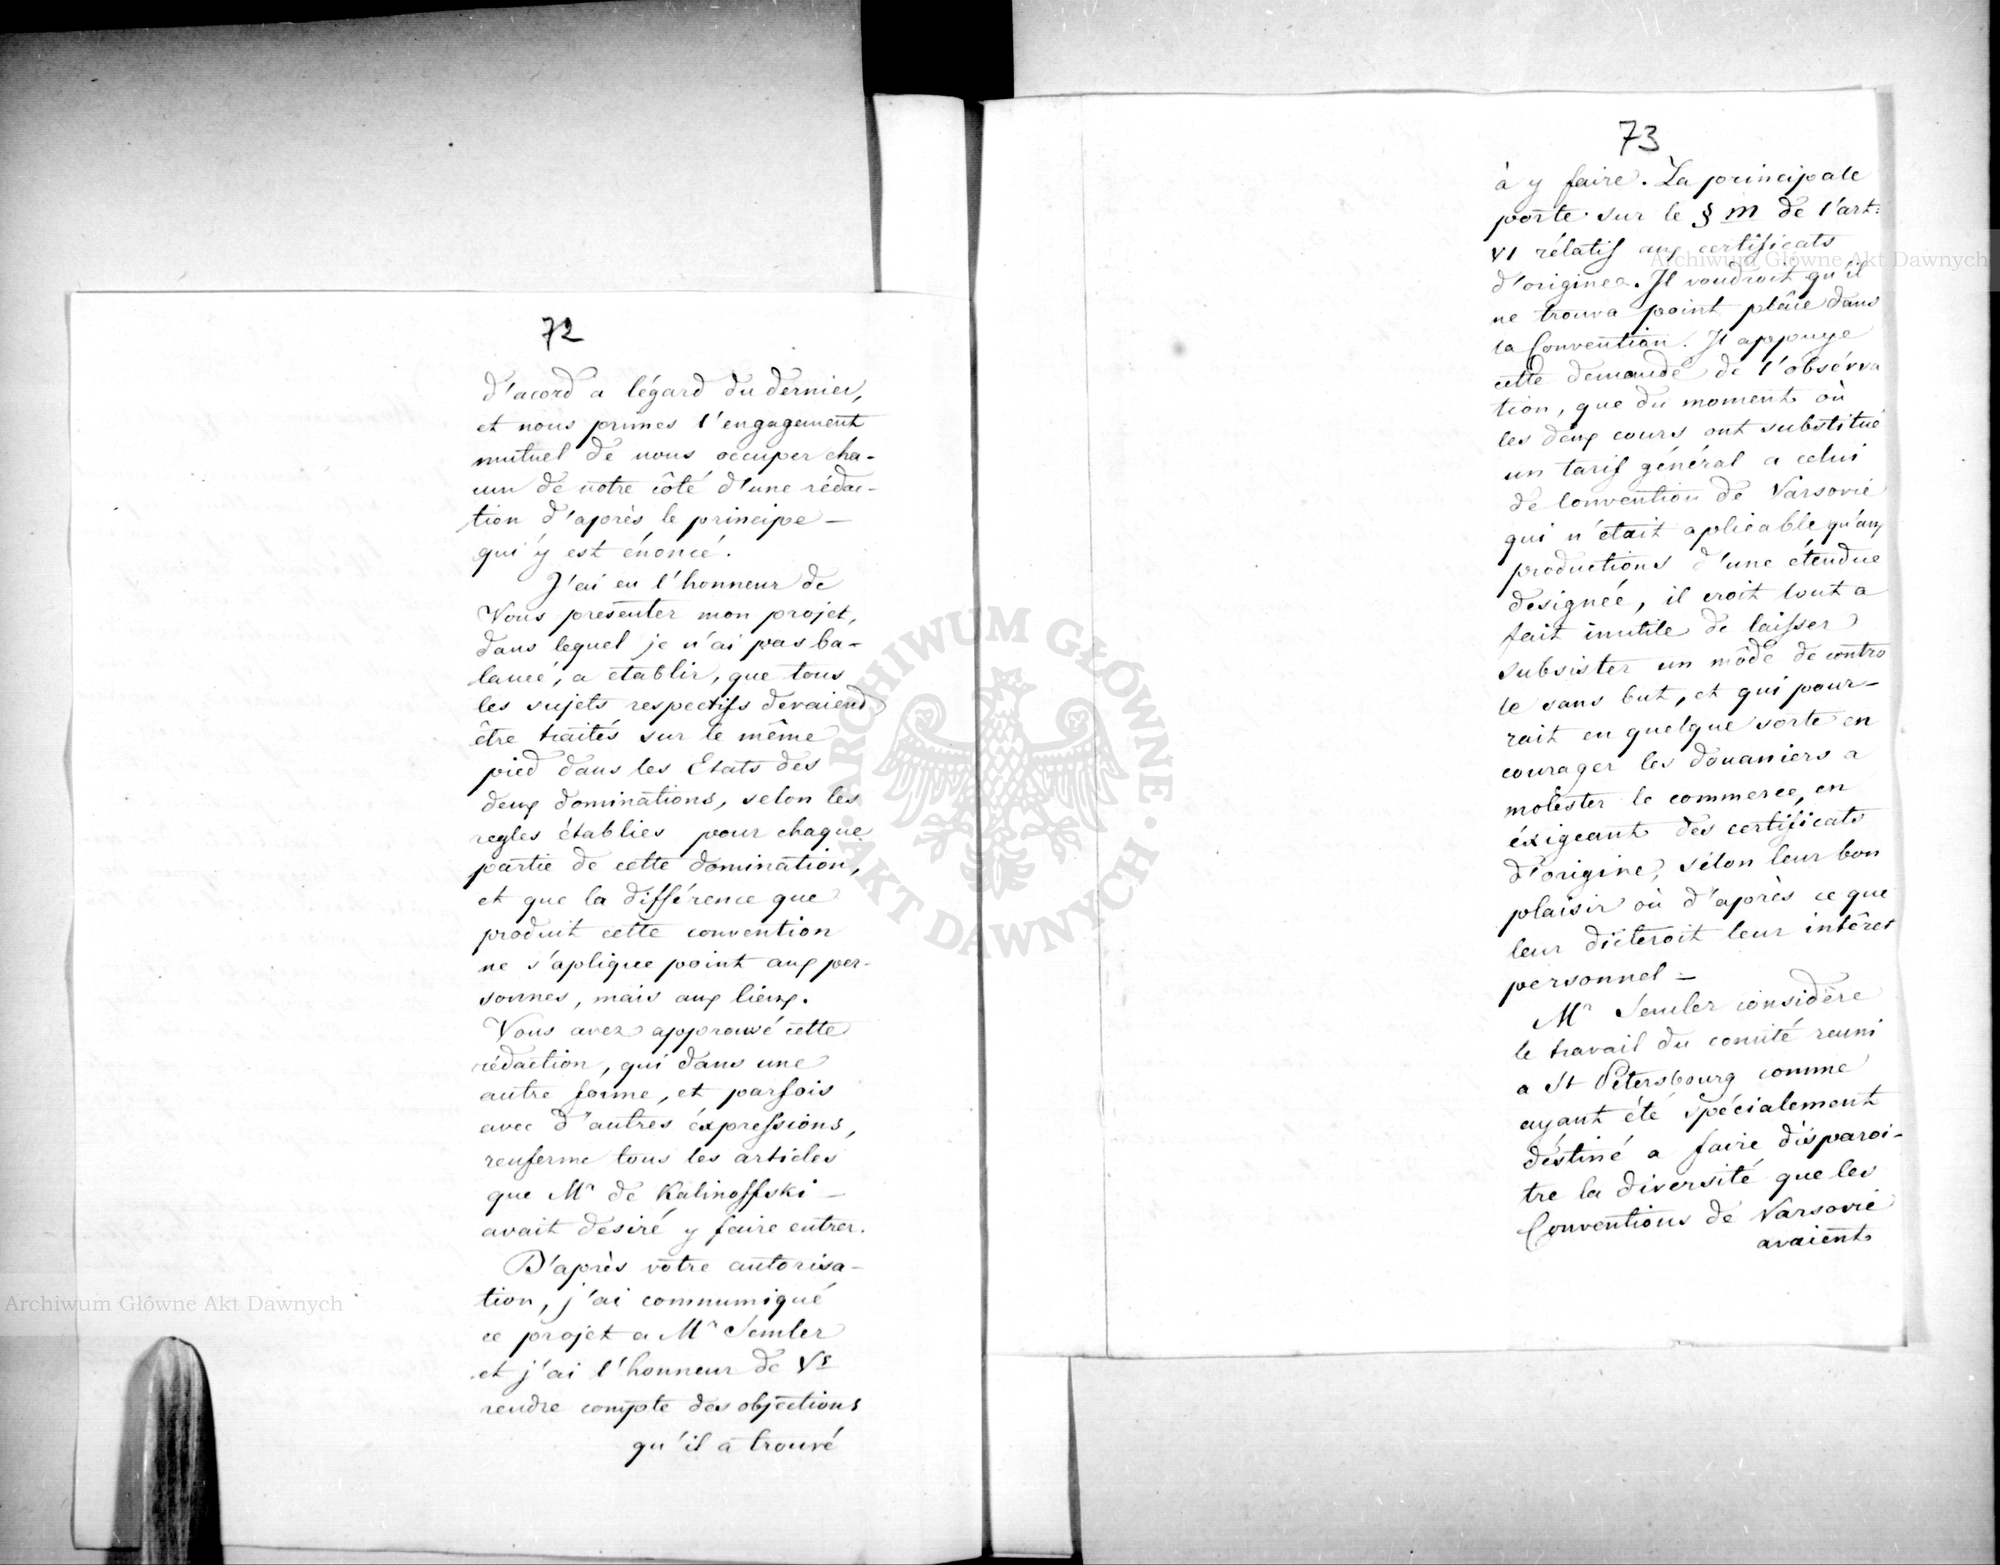 72
d'acord a légard du dernier,
et nous primes l'engagement
mutuel de nous occuper cha-
cun de notre côté d'une rédac-
tion d'après le principe -
qui y est énoncé.
J'ai eu l'honneur de
Vous presenter mon projet,
dans lequel je n'ai pas ba-
lancé, a etablir, que tous
les sujets respectifs devaiend
être traités sur le même
pied dans les Etats des
deux dominations, selon les
regles établies pour chaque
partie de cette domination,
et que la différence que
produit cette convention
ne s'aplique point aux per-
sonnes, mais aux lieux.
Vous avez approuvé cette
rédaction, qui dans une
autre forme, et parfois
avec d'autres éxpressions,
renferme tous les articles
que Mr de Kalinoffski -
avait desiré y faire entrer.
D'après vôtre autorisa-
tion, j'ai communiqué
ce projet a Mr Semler
et j'ai l'honneur de Vs
rendre compte des objections
qu'il a trouvé
73
à y faire. La principale
porte sur le § m de l'art:
VI rélatif aux certificats
d'origines. Il voudroit qu'il
ne trouva point place dans
la Convention. Il appuye
cette demande de l'obsérva
tion, que du moment où
les deux cours ont substitué
un tarif général a celui
de convention de Varsovie
qui n'était aplicable qu'aux
productions d'une étendue
designée, il croit tout a
fait inutile de laisser
subsister un môde de contro
le sans but, et qui pour-
rait en quelque sorte en
courager les douaniers a
molester le commerce, en
éxigeant des certificats
d'origine, sélon leur bon
plaisir où d'après ce que
leur dicteroit leur intêret
personnel -
Mr Semler considère
le travail du comité reuni
a St Petersbourg comme
ayant été spécialement
déstiné a faire disparoi-
tre la diversité que les
Conventions de Varsovie
avaient
Archiwum Główne Akt Dawnych
Archiwum Główne Akt Dawnych
ARCHIWUM GŁÓWNE · AKT DAWNYCH ·